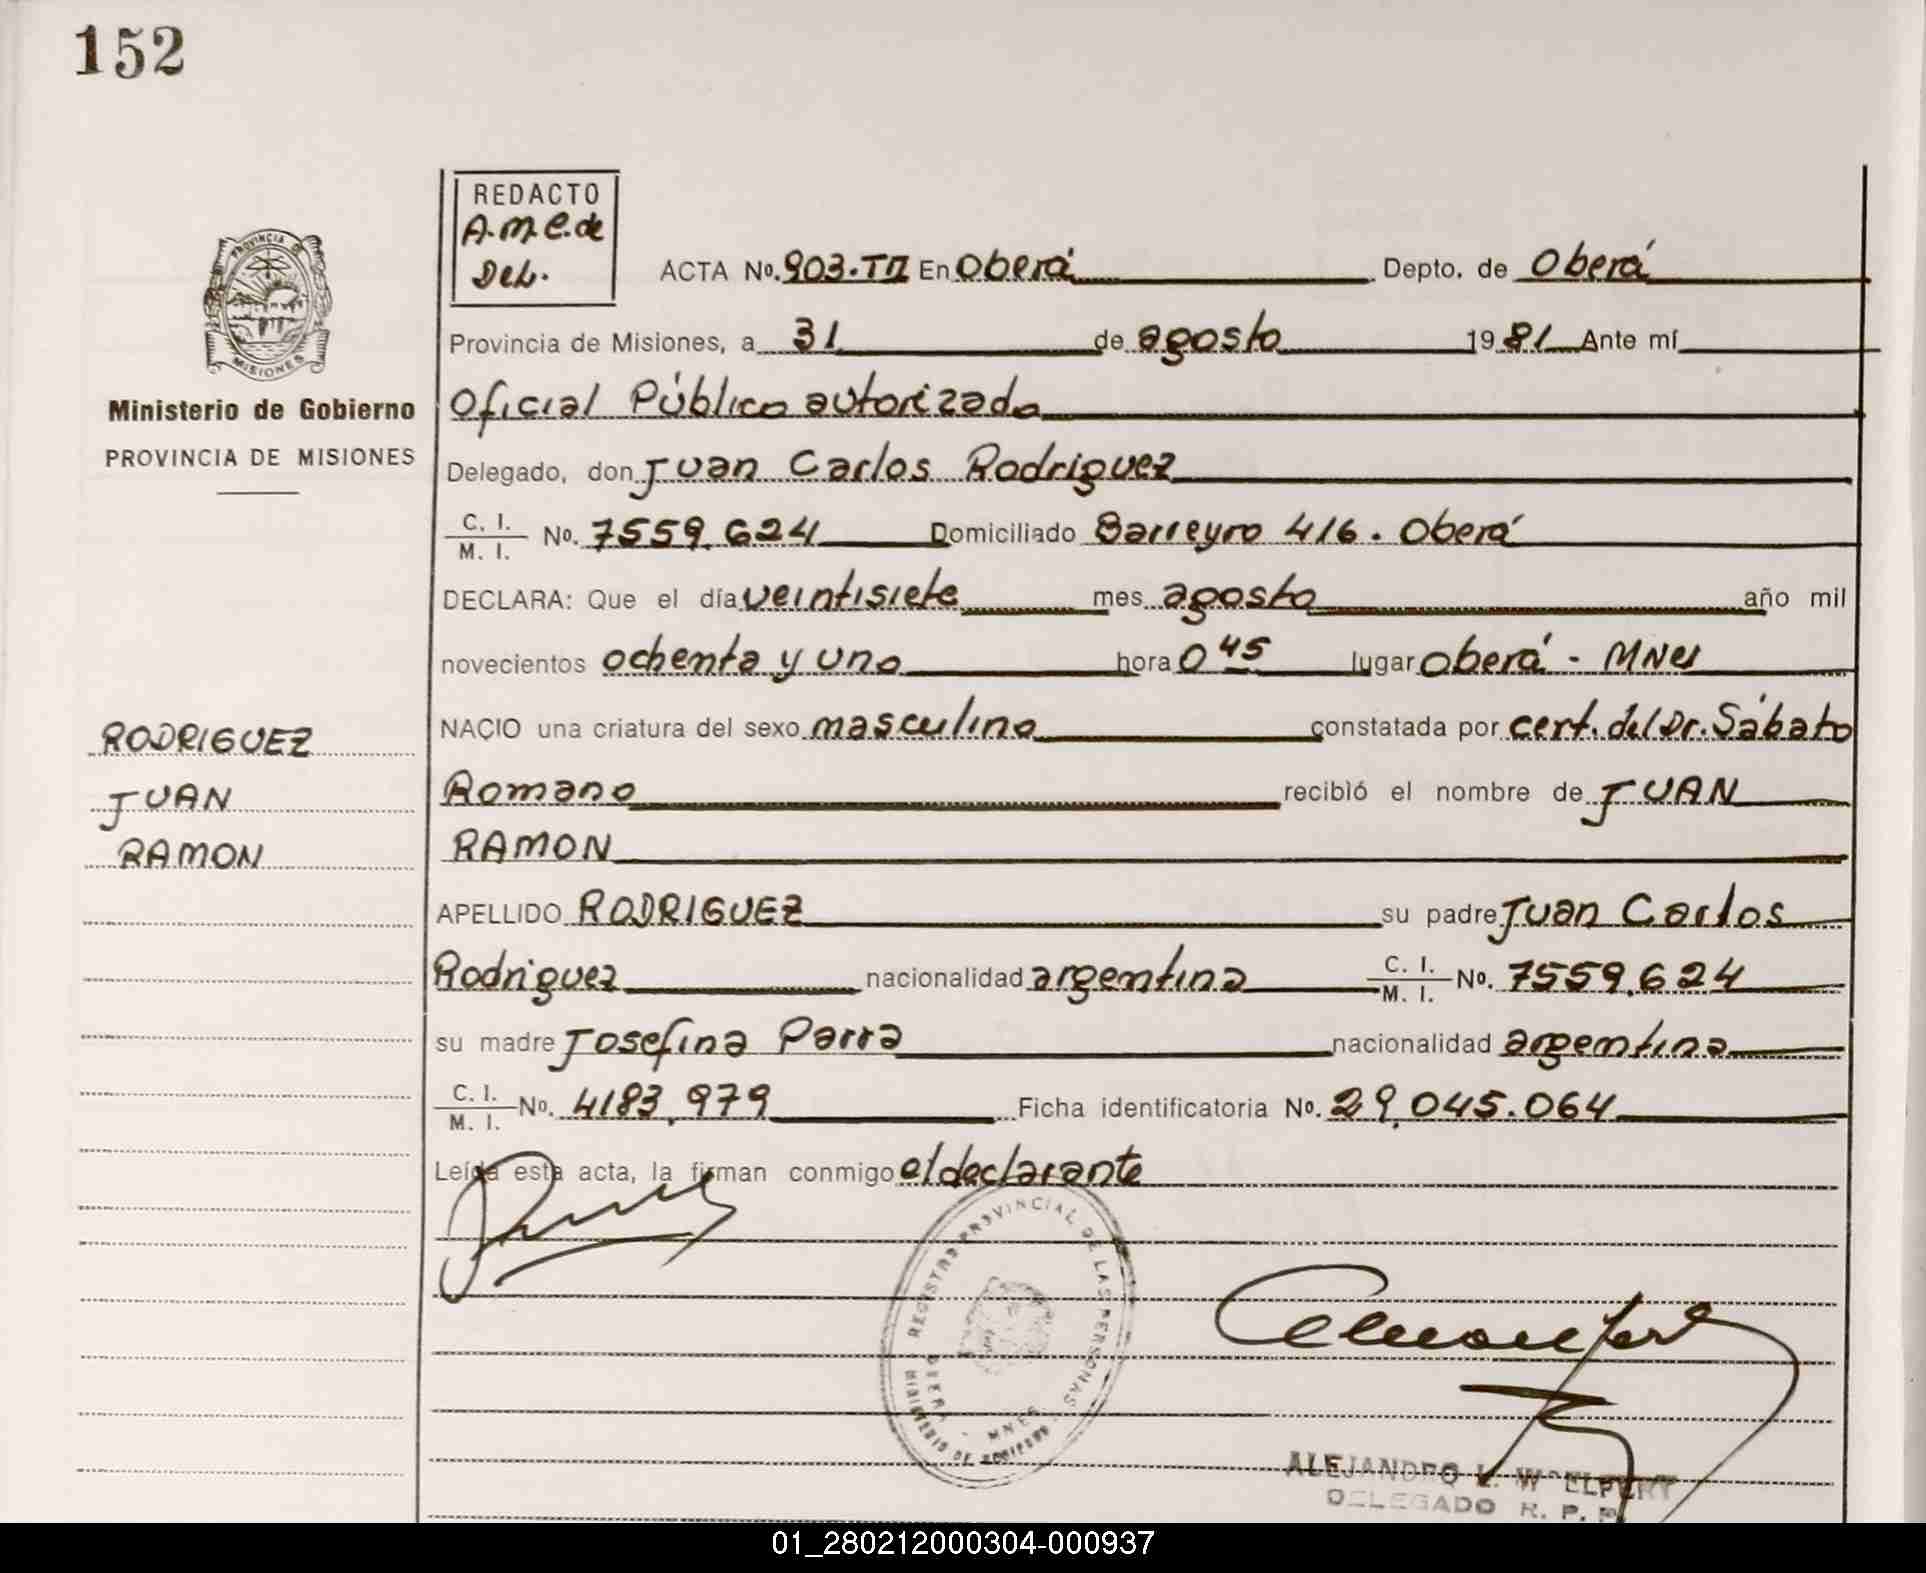 152
REDACTO
A.M.C. de
Del.
PROVINCIA DE
MISIONES
Ministerio de Gobierno
PROVINCIA DE MISIONES
ACTA No. 903.TII En Oberá Depto. de Oberá
Provincia de Misiones, a 31 de agosto 1981 Ante mí
Oficial Público autorizado
Delegado, don Juan Carlos Rodriguez
C. I.
M. I. No. 7559.624 Domiciliado Barreyro 416. Oberá
DECLARA: Que el día veintisiete mes agosto año mil
novecientos ochenta y uno hora 0 45 lugar Oberá - Mnes
NACIO una criatura del sexo masculino constatada por cert. del Dr. Sábato
Romano recibió el nombre de JUAN
RAMON
APELLIDO RODRIGUEZ su padre Juan Carlos
Rodriguez nacionalidad argentina C. I. M. I. No. 7559.624
su madre Josefina Parra nacionalidad argentina
C. I.
M. I. No. 4183.979 Ficha identificatoria No. 29.045.064
Leída esta acta, la firman conmigo el declarante
RODRIGUEZ
JUAN
RAMON
REGISTRO PROVINCIAL DE LAS PERSONAS
OBERA - MNES
MINISTERIO DE GOBIERNO
ALEJANDRO L.
DELEGADO R. P. P.
01_280212000304-000937